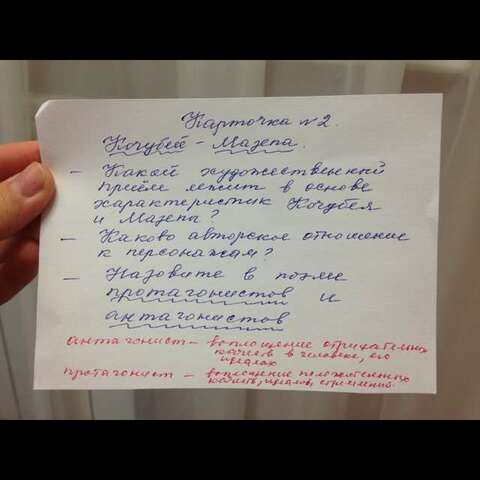 Карточка №2.
Кочубей - Мазепа.
- Какой художественный
приём лежит в основе
характеристик Кочубея
и Мазепы?
- Каково авторское отношение
к персонажам?
- Назовите в поэме
протагонистов и
антагонистов
антагонист - воплощение отрицательных
качеств в человеке, его
идеалах
протагонист - воплощение положительных
качеств, идеалов, стремлений.